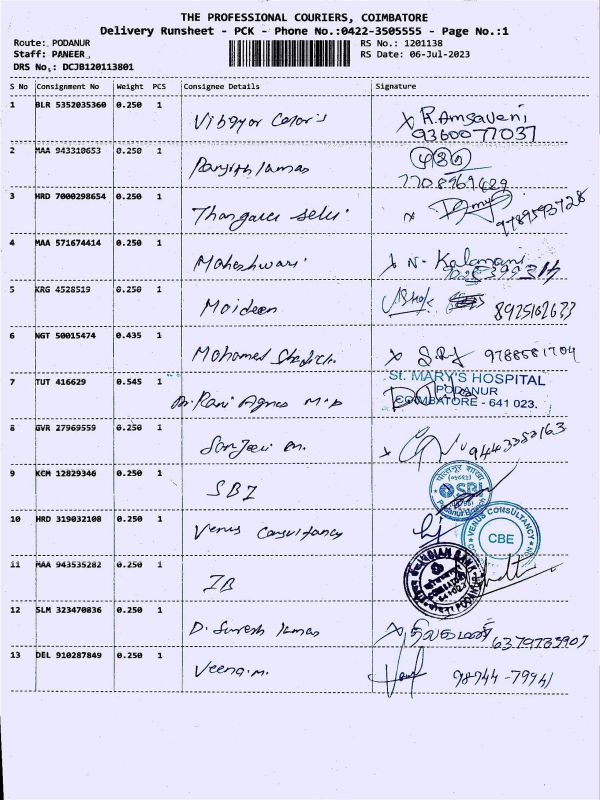 THE PROFESSIONAL COURIERS, COIMBATORE
Delivery Runsheet - PCK - Phone No.:0422-3505555 - Page No.:1
Route: PODANUR RS No.: 1201138
Staff: PANEER RS Date: 06-Jul-2023
DRS No,: DCJB120113801
S No Consignment No Weight PCS Consignee Details Signature
1 BLR 5352035360 0.250 1 Vibgyor Color's R.Amsaveni
9360077037
2 MAA 943310653 0.250 1
7708969429
3 HRD 7000298654 0.250 1 Thangavel selvi 9789593728
4 MAA 571674414 0.250 1 Maheshwari N. Kalamani
5 KRG 4528519 0.250 1 Moideen
6 NGT 50015474 0.435 1 Mohamed
7 TUT 416629 0.545 1 Dr. Rani Agnes M.D St. MARY'S HOSPITAL
PODANUR
COIMBATORE - 641 023.
8 GVR 27969559 0.250 1
9 KCM 12829346 0.250 1 SBI SBI
Podanur Branch
10 HRD 319032108 0.250 1 Venus Consultancy VENUS CONSULTANCY
CBE
11 MAA 943535282 0.250 1 IB INDIAN BANK
PODANUR
12 SLM 323470836 0.250 1 D. Suresh kumar திலகமணி
13 DEL 910287849 0.250 1 Veena.m. 98744-79941